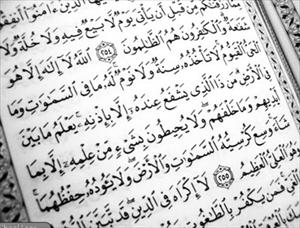 ٱلَّذِينَ ءَامَنُوٓا۟ أَنفِقُوا۟
رَزَقْنَـٰكُم مِّن قَبْلِ أَن يَأْتِىَ يَوْمٌ لَّا بَيْعٌ فِيهِ وَلَا خُلَّةٌ وَلَا
شَفَـٰعَةٌ وَٱلْكَـٰفِرُونَ هُمُ ٱلظَّـٰلِمُونَ ٢٥٤ ٱللَّهُ لَآ إِلَـٰهَ إِلَّا هُوَ
ٱلْحَىُّ ٱلْقَيُّومُ لَا تَأْخُذُهُۥ سِنَةٌ وَلَا نَوْمٌ لَّهُۥ مَا فِى ٱلسَّمَـٰوَٰتِ وَمَا
فِى ٱلْأَرْضِ مَن ذَا ٱلَّذِى يَشْفَعُ عِندَهُۥٓ إِلَّا بِإِذْنِهِۦ يَعْلَمُ مَا بَيْنَ
أَيْدِيهِمْ وَمَا خَلْفَهُمْ وَلَا يُحِيطُونَ بِشَىْءٍ مِّنْ عِلْمِهِۦٓ إِلَّا بِمَا
شَآءَ وَسِعَ كُرْسِيُّهُ ٱلسَّمَـٰوَٰتِ وَٱلْأَرْضَ وَلَا يَـُٔودُهُۥ حِفْظُهُمَا
وَهُوَ ٱلْعَلِىُّ ٱلْعَظِيمُ ٢٥٥ لَآ إِكْرَاهَ فِى ٱلدِّينِ قَد تَّبَيَّنَ
ٱلْغَىِّ فَمَن يَكْفُرْ بِٱلطَّـٰغُوتِ